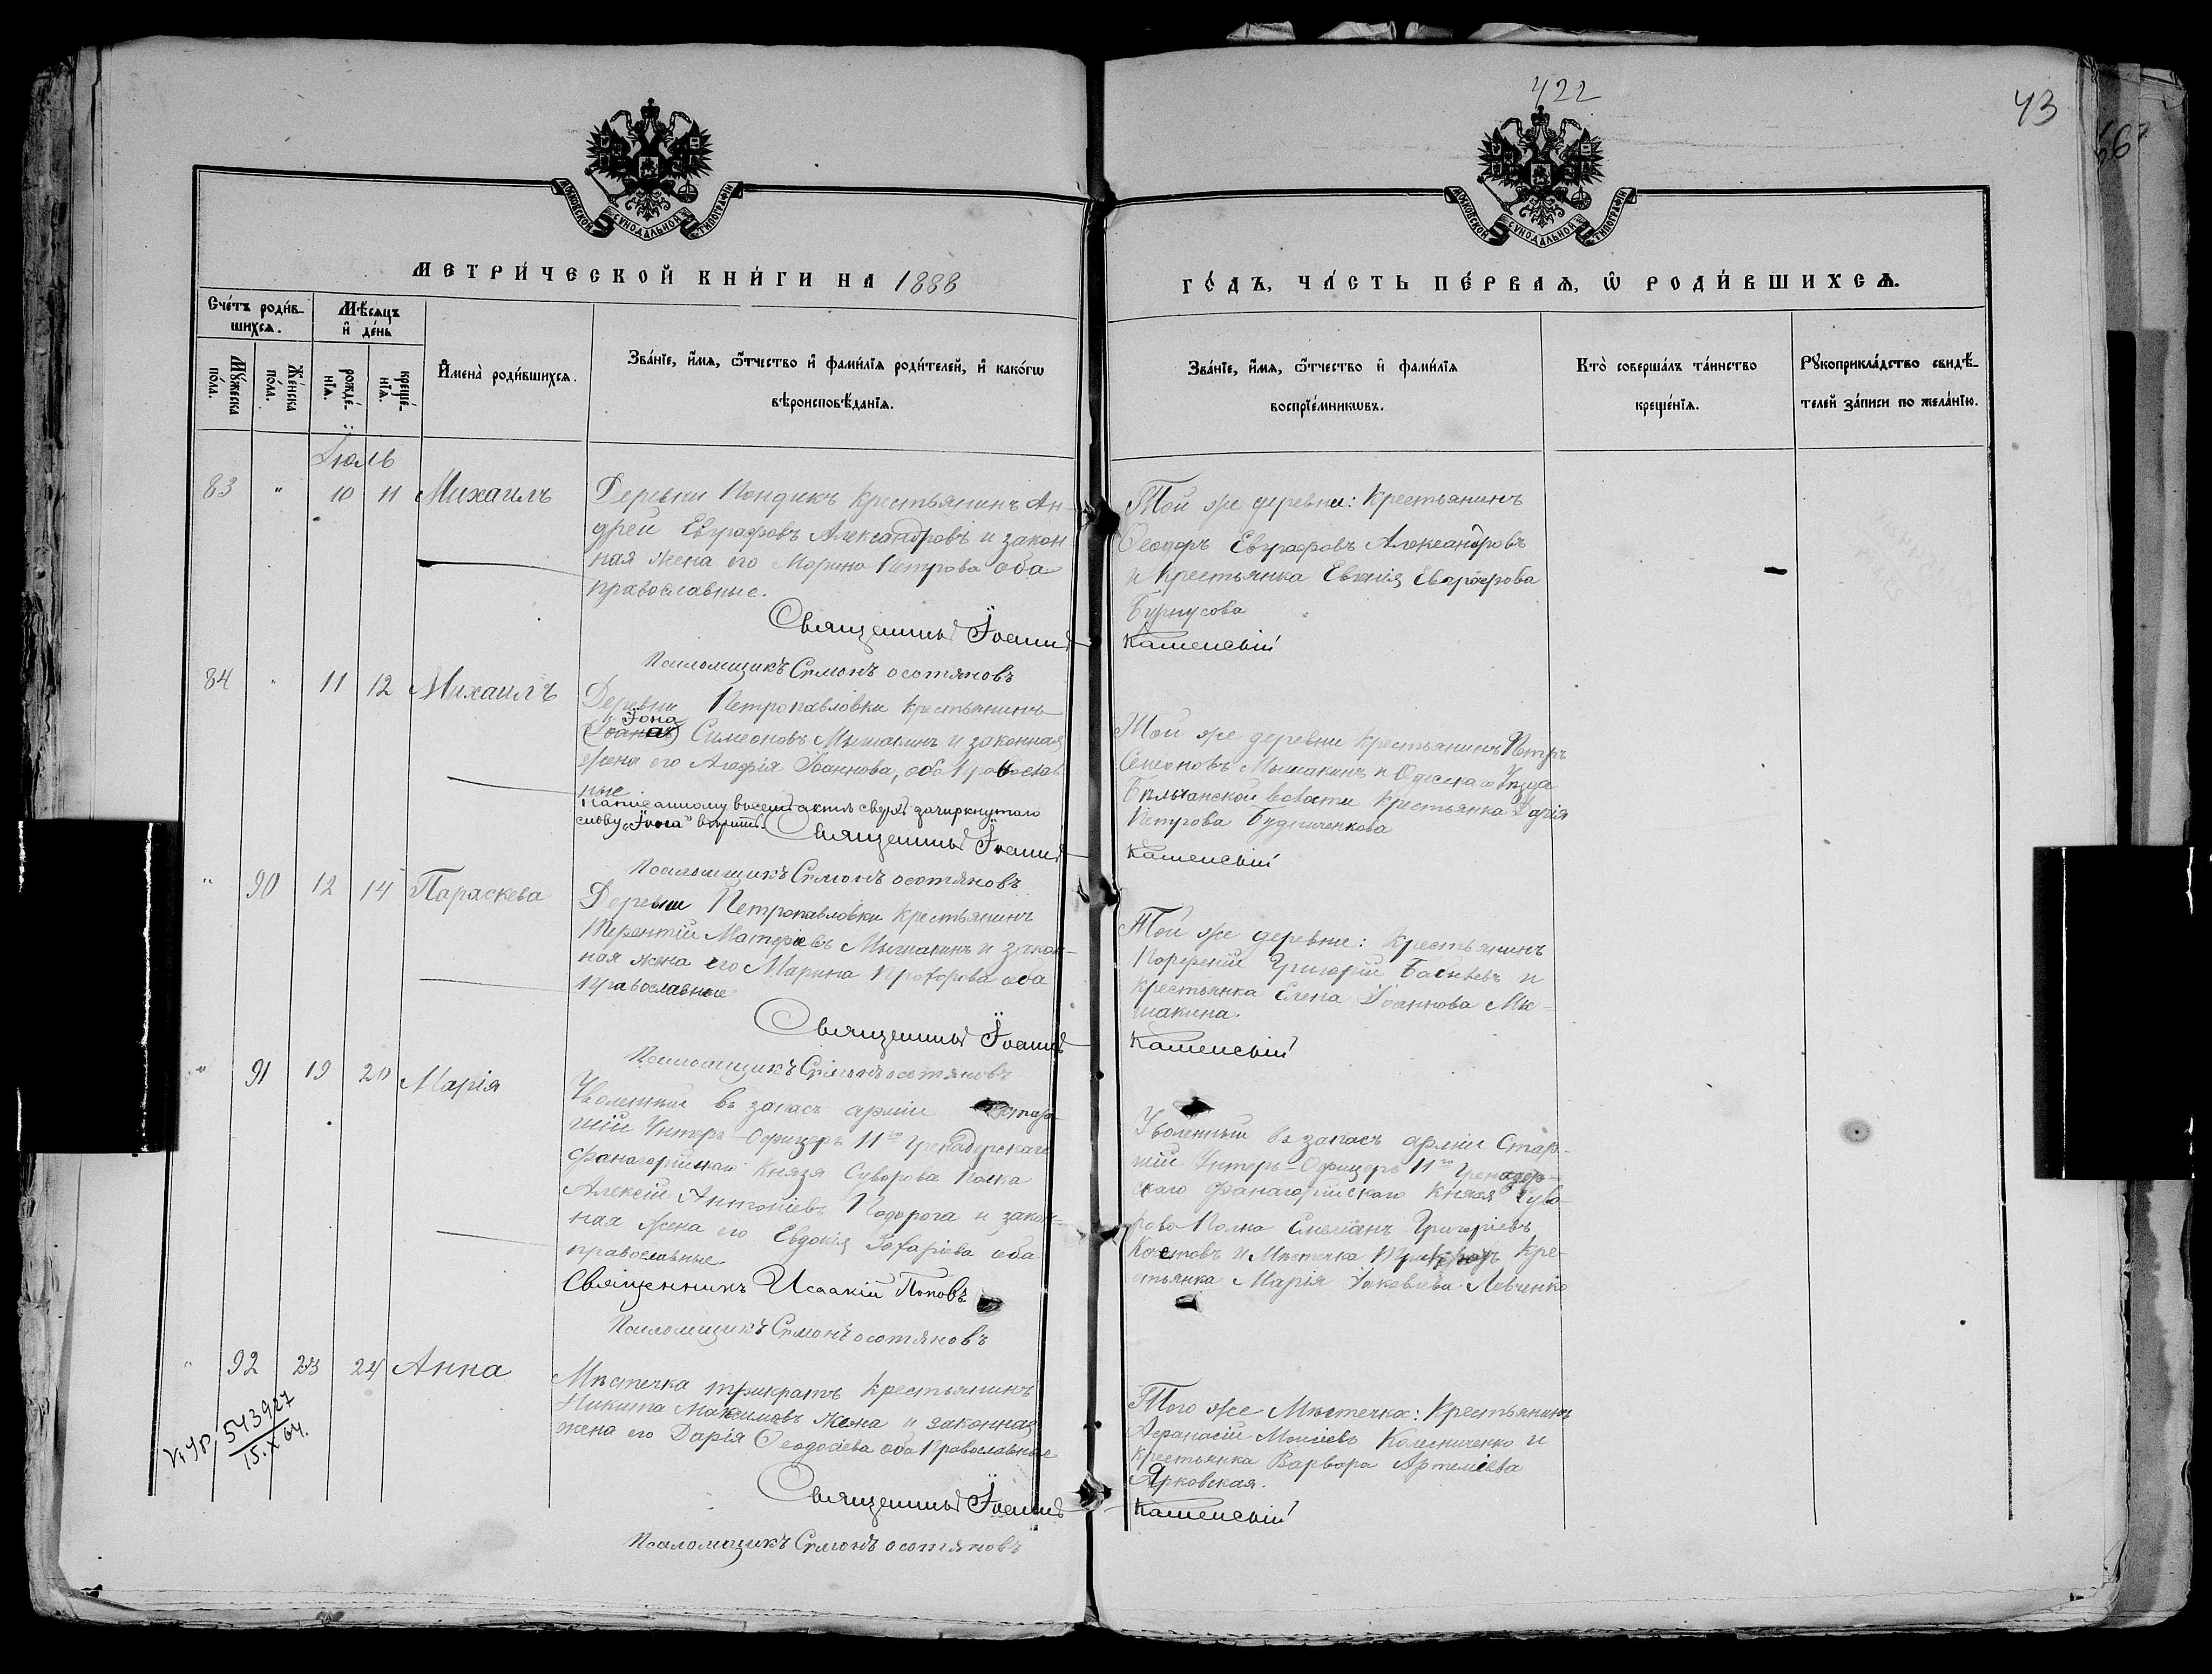 422
43
МОСКОВСКОЙ СѴНОДАЛЬНОЙ ТИПОГРАФІИ
МОСКОВСКОЙ СѴНОДАЛЬНОЙ ТИПОГРАФІИ
МЕТРИ́ЧЕСКОЙ КНИ́ГИ НА 1888
ГО́ДЪ, ЧА́СТЬ ПЕ́РВАѦ, Ѡ҆ РОДИ́ВШИХСѦ.
Сче́тъ роди́в-
шихсѧ.
Мѣ́сѧцъ
и҆ де́нь
Мꙋ́жеска
по́ла.
Же́нска
по́ла.
рожде́-
нїѧ.
креще́-
нїѧ.
И҆мена̀ роди́вшихсѧ.
Зва́нїе, и҆́мѧ, ѻ҆́тчество и҆ фами́лїѧ роди́телей, и҆ како́гѡ
вѣроисповѣ́данїѧ.
Зва́нїе, и҆́мѧ, ѻ҆́тчество и҆ фами́лїѧ
воспрїе́мникѡвъ.
Кто̀ соверша́лъ та́инство
креще́нїѧ.
Рꙋкоприкла́дство свидѣ́-
телей за́писи по жела́нїю.
Іюль
83 " 10 11 Михаилъ
Деревни Пондикъ крестьянинъ Ан-
дрей Евграфовъ Александровъ и закон
ная жена его Марина Петрова оба
православные.
Священникъ Іоаннъ
Псаломщикъ Симонъ Осотяновъ
Той же деревни: крестьянинъ
Ѳеодоръ Евграфовъ Александровъ
и крестьянка Евгенія Евграфова
Бурнусова
Каменскій
84 " 11 12 Михаилъ
Деревни Петропавловки крестьянинъ
Іона
Симеоновъ Мышакинъ и законная
жена его Агафія Іоаннова, оба православ
ные
Написанному въ семъ актѣ сверхъ зачеркнутаго
слову „Іона" вѣрить. Священникъ Іоаннъ
Псаломщикъ Симонъ Осотяновъ
Той же деревни крестьянинъ Петръ
Семеновъ Мышакинъ и Одесскаго Уѣзда
волости крестьянка Дарія
Петрова
Каменскій
" 90 12 14 Параскева
Деревни Петропавловки крестьянинъ
Терентій Матѳіевъ Мышакинъ и закон-
ная жена его Марина Прохорова оба
православные
Священникъ Іоаннъ
Псаломщикъ Симонъ Осотяновъ
Той же деревни: крестьянинъ
Порфирій Григорій и
крестьянка Елена Іоаннова Мы-
шакина.
Каменскій
" 91 19 20 Марія
Уволенный въ запасъ арміи Стар-
шій Унтеръ-Офицеръ 11го Гренадерскаго
Фанагорійскаго Князя Суворова Полка
Алексій Антоніевъ Подорога и закон-
ная жена его Евдокія Захаріева оба
православные.
Священникъ Исаакій Поповъ
Псаломщикъ Симонъ Осотяновъ
Уволенный въ запасъ арміи Стар-
шій Унтеръ-Офицеръ 11го Гренадер-
скаго Фанагорійскаго Князя Суво-
рова Полка Емеліанъ Григоріевъ
и Мѣстечка Трикратъ Кре-
стьянка Марія Іаковлева Левченко
" 92 23 24 Анна
Мѣстечка Трикратъ крестьянинъ
Никита Максимовъ Жежа и законная
жена его Дарія Ѳеодосіева оба Православные
Священникъ Іоаннъ
Псаломщикъ Симонъ Осотяновъ
Того же Мѣстечка: Крестьянинъ
Аѳанасій Моисеевъ Колесниченко и
крестьянка Варвора Артеміева
Ярковская.
Каменскій
543927
15.X 64.